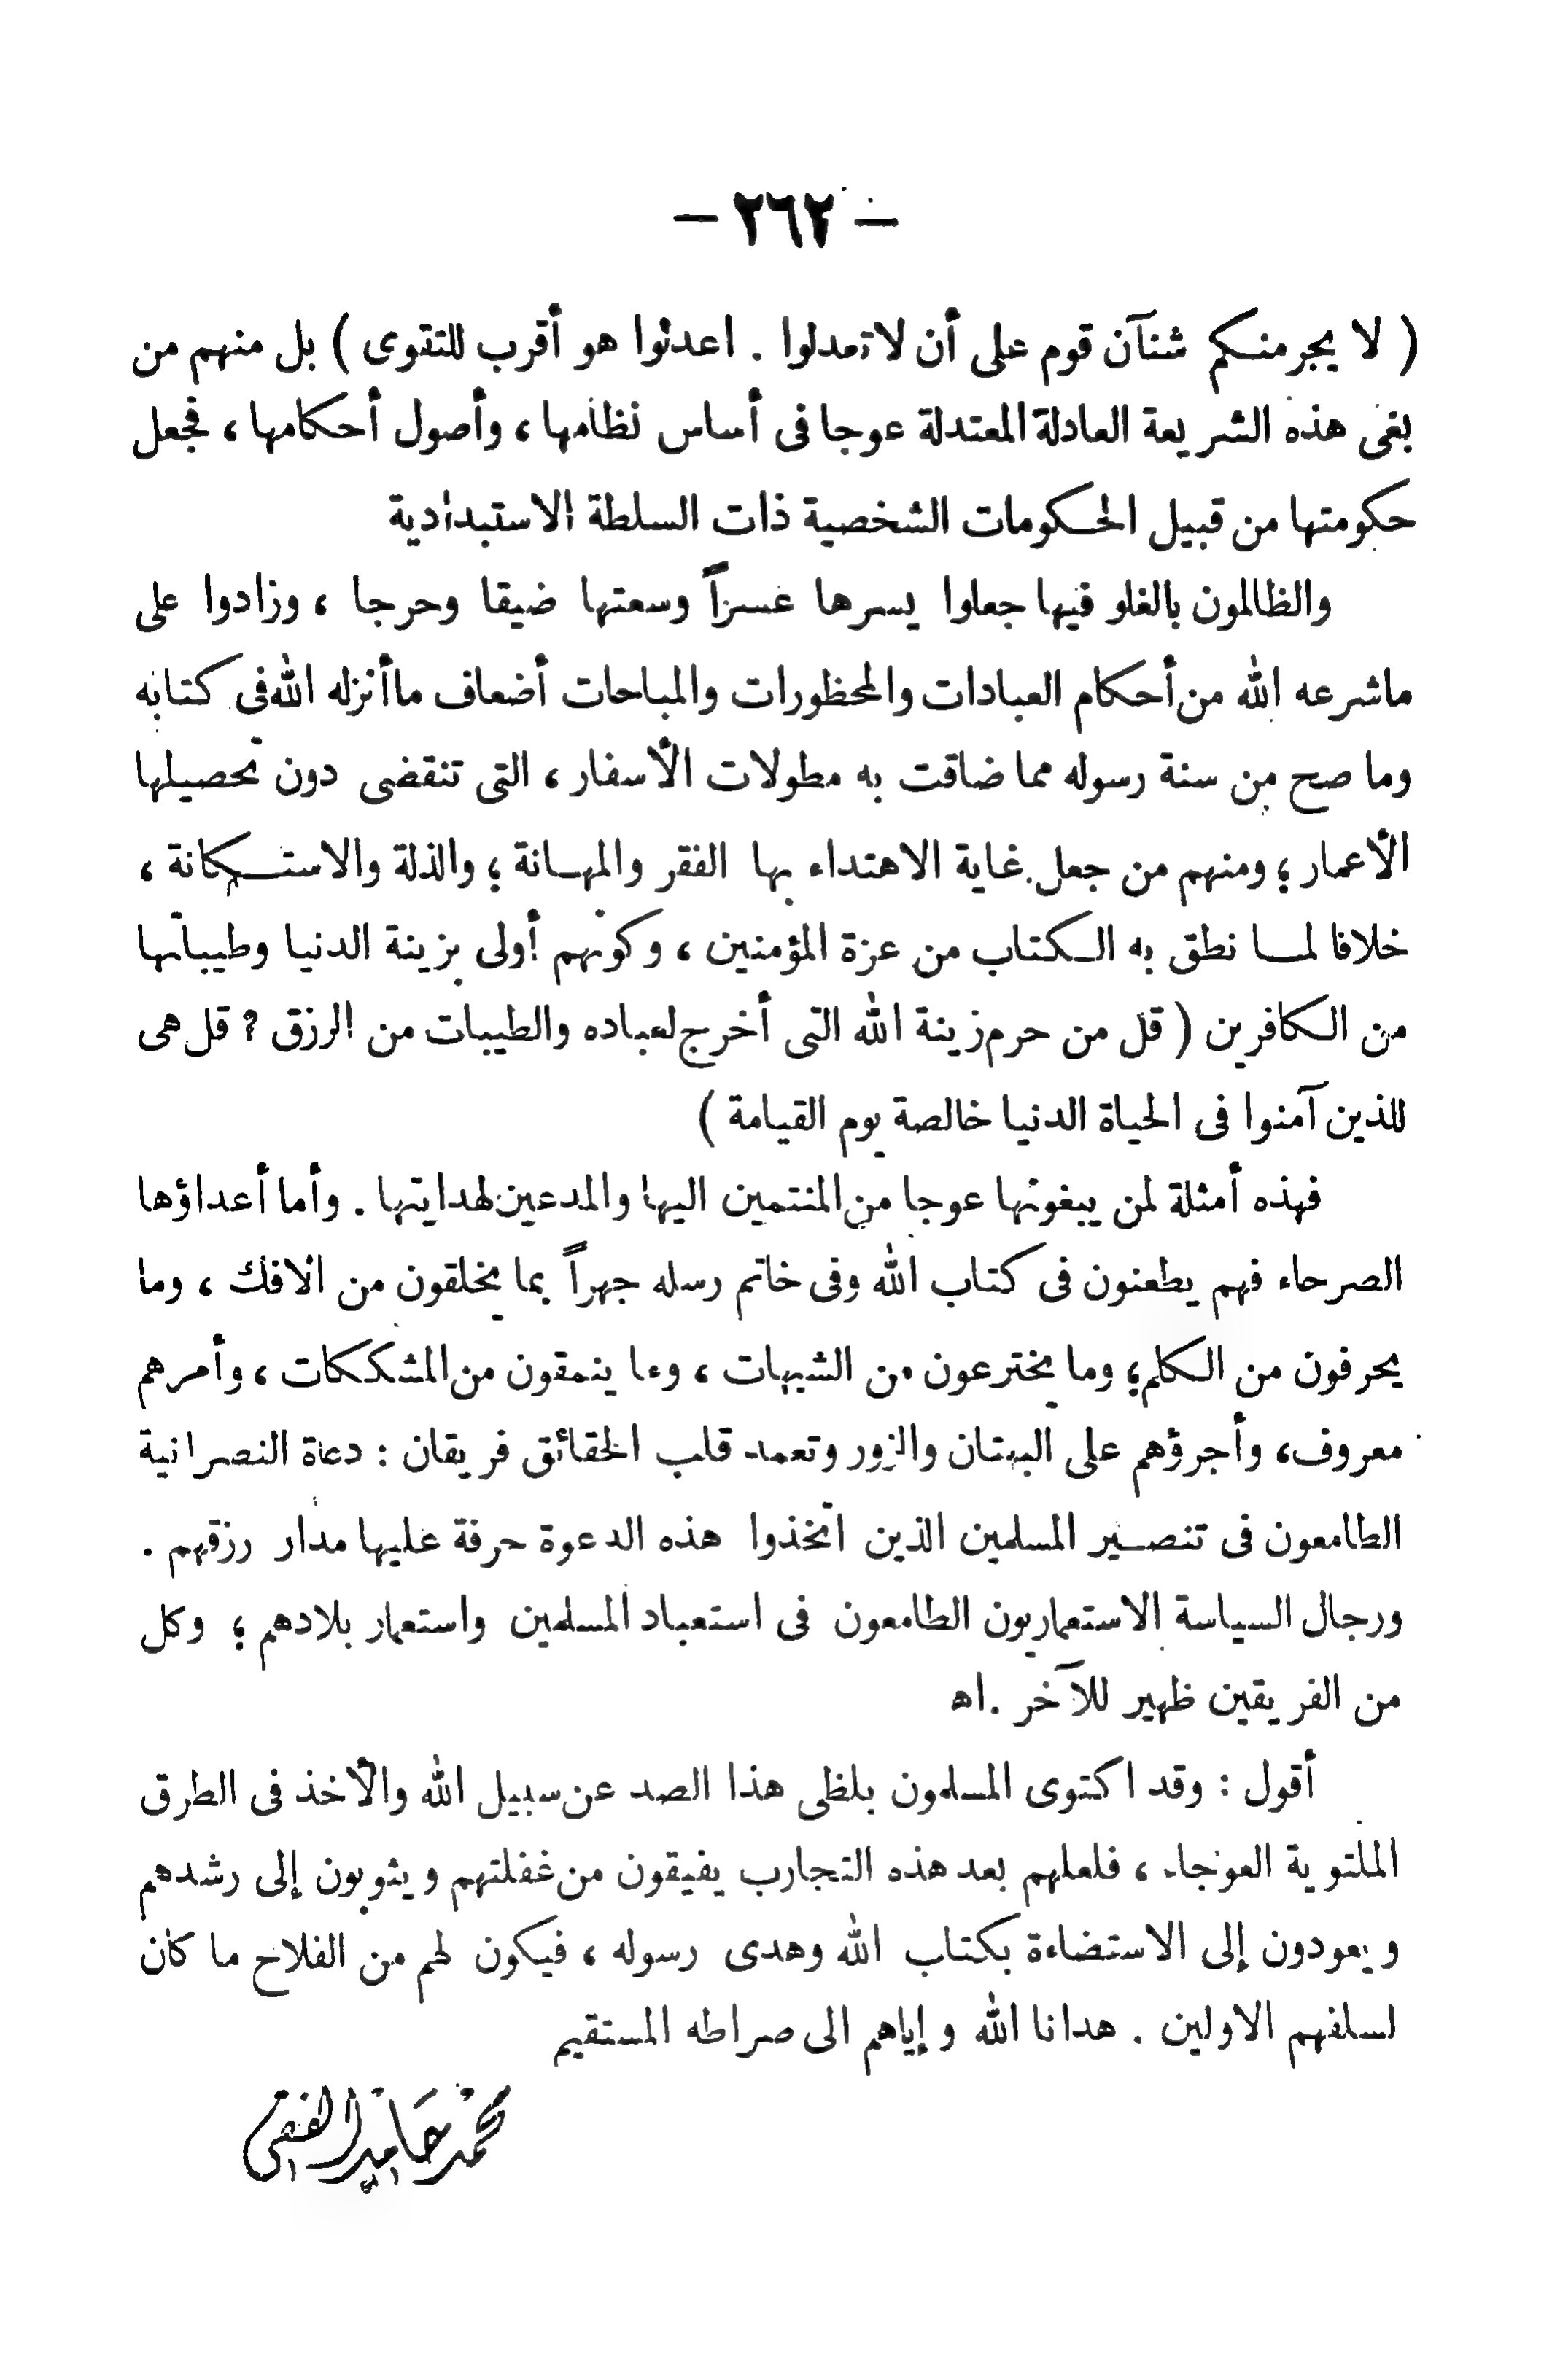 — ٢٦٢ —
( لا يجرمنكم شنآن قوم على أن لا تعدلوا . اعدلوا هو أقرب للتقوى ) بل منهم من
بغى هذه الشريعة العادلة المعتدلة عوجا فى أساس نظامها ، وأصول أحكامها ، فجعل
حكومتها من قبيل الحكومات الشخصية ذات السلطة الاستبدادية
والظالمون بالغلو فيها جعلوا يسرها عسراً وسعتها ضيقا وحرجا ، وزادوا على
ماشرعه الله من أحكام العبادات والمحظورات والمباحات أضعاف ماأنزله الله فى كتابه
وما صح من سنة رسوله مما ضاقت به مطولات الأسفار ، التى تنقضى دون تحصيلها
الأعمار ؛ ومنهم من جعل غاية الاهتداء بها الفقر والمهانة ؛ والذلة والاستكانة ،
خلافا لما نطق به الكتاب من عزة المؤمنين ، وكونهم أولى بزينة الدنيا وطيباتها
من الكافرين ( قل من حرم زينة الله التى أخرج لعباده والطيبات من الرزق ؟ قل هى
للذين آمنوا فى الحياة الدنيا خالصة يوم القيامة )
فهذه أمثلة لمن يبغونها عوجا من المنتمين اليها والمدعين لهدايتها . وأما أعداؤها
الصرحاء فهم يطعنون فى كتاب الله وفى خاتم رسله جهراً بما يخلقون من الافك ، وما
يحرفون من الكلم ؛ وما يخترعون من الشبهات ، وما ينمقون من المشككات ، وأمرهم
معروف، وأجرؤهم على البهتان والزور وتعمد قلب الحقائق فريقان : دعاة النصرانية
الطامعون فى تنصير المسلمين الذين اتخذوا هذه الدعوة حرفة عليها مدار رزقهم .
ورجال السياسة الاستعماريون الطامعون فى استعباد المسلمين واستعمار بلادهم ؛ وكل
من الفريقين ظهير للآخر . اه
أقول : وقد اكتوى المسلمون بلظى هذا الصد عن سبيل الله والأخذ فى الطرق
الملتوية العوجاء ، فلعلهم بعد هذه التجارب يفيقون من غفلتهم ويثوبون إلى رشدهم
ويعودون إلى الاستضاءة بكتاب الله وهدى رسوله ، فيكون لهم من الفلاح ما كان
لسلفهم الاولين . هدانا الله وإياهم الى صراطه المستقيم
محمد حامد الفقي